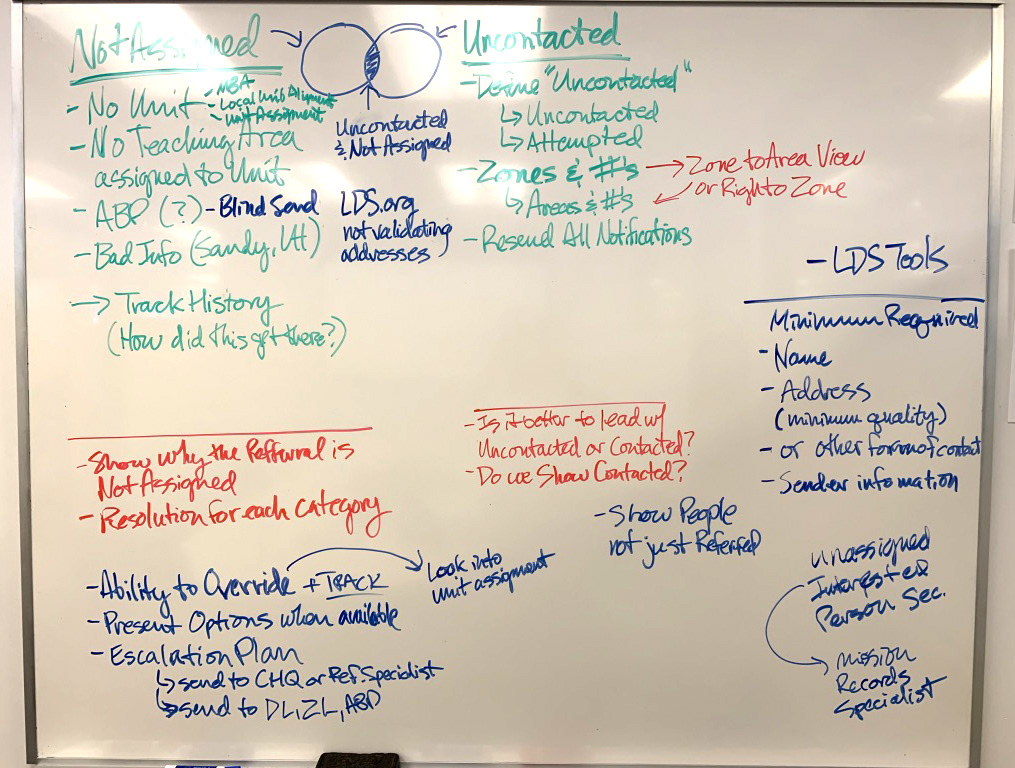 Not Assigned
- No Unit
- MBA
- Local Unit Alignment
- Unit Assignment
- No Teaching Area
assigned to Unit
- ABP (?) - Blind Send
- Bad Info (Sandy, UT)
→ Track History
(How did this get there?)
Uncontacted
& Not Assigned
LDS.org
not validating
addresses
Uncontacted
- Define "Uncontacted"
↳ Uncontacted
↳ Attempted
- Zones & #'s → Zone to Area View
or Right to Zone
↳ Areas & #'s
- Resend All Notifications
- LDS Tools
Minimum Required
- Name
- Address
(minimum quality)
- or other form of contact
- Sender information
- Show why the Refferral is
Not Assigned
- Resolution for each category
- Is it better to lead w/
Uncontacted or Contacted?
- Do we Show Contacted?
- Show People
not just Referred
- Ability to Override + TRACK
Look into
unit assignment
- Present Options when available
- Escalation Plan
↳ send to CHQ or Ref. Specialist
↳ send to DL, ZL, ABP
Unassigned
Interested
Person Sec.
Mission
Records
Specialist